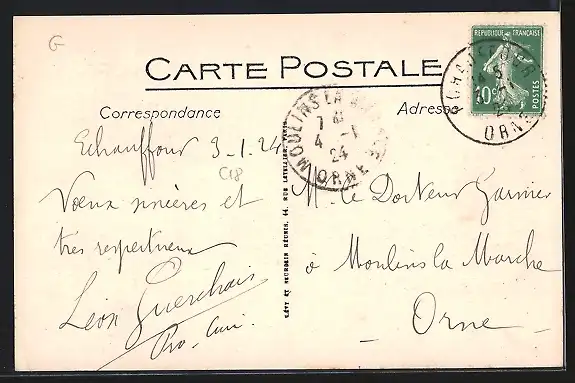 G
CARTE POSTALE
REPUBLIQUE FRANÇAISE
10c
POSTES
ORNE
Correspondance
Adresse
MOULINS LA MARCHE
7
4 -1
24
ORNE
Echauffour 3-1.24
Voeux sincères et
très respectueux
Léon Guerchais
Pro. Curé.
LÉVY ET NEURDEIN RÉUNIS, 44, RUE LETELLIER, PARIS
M. le Docteur Garnier
à Moulins la Marche
- Orne -